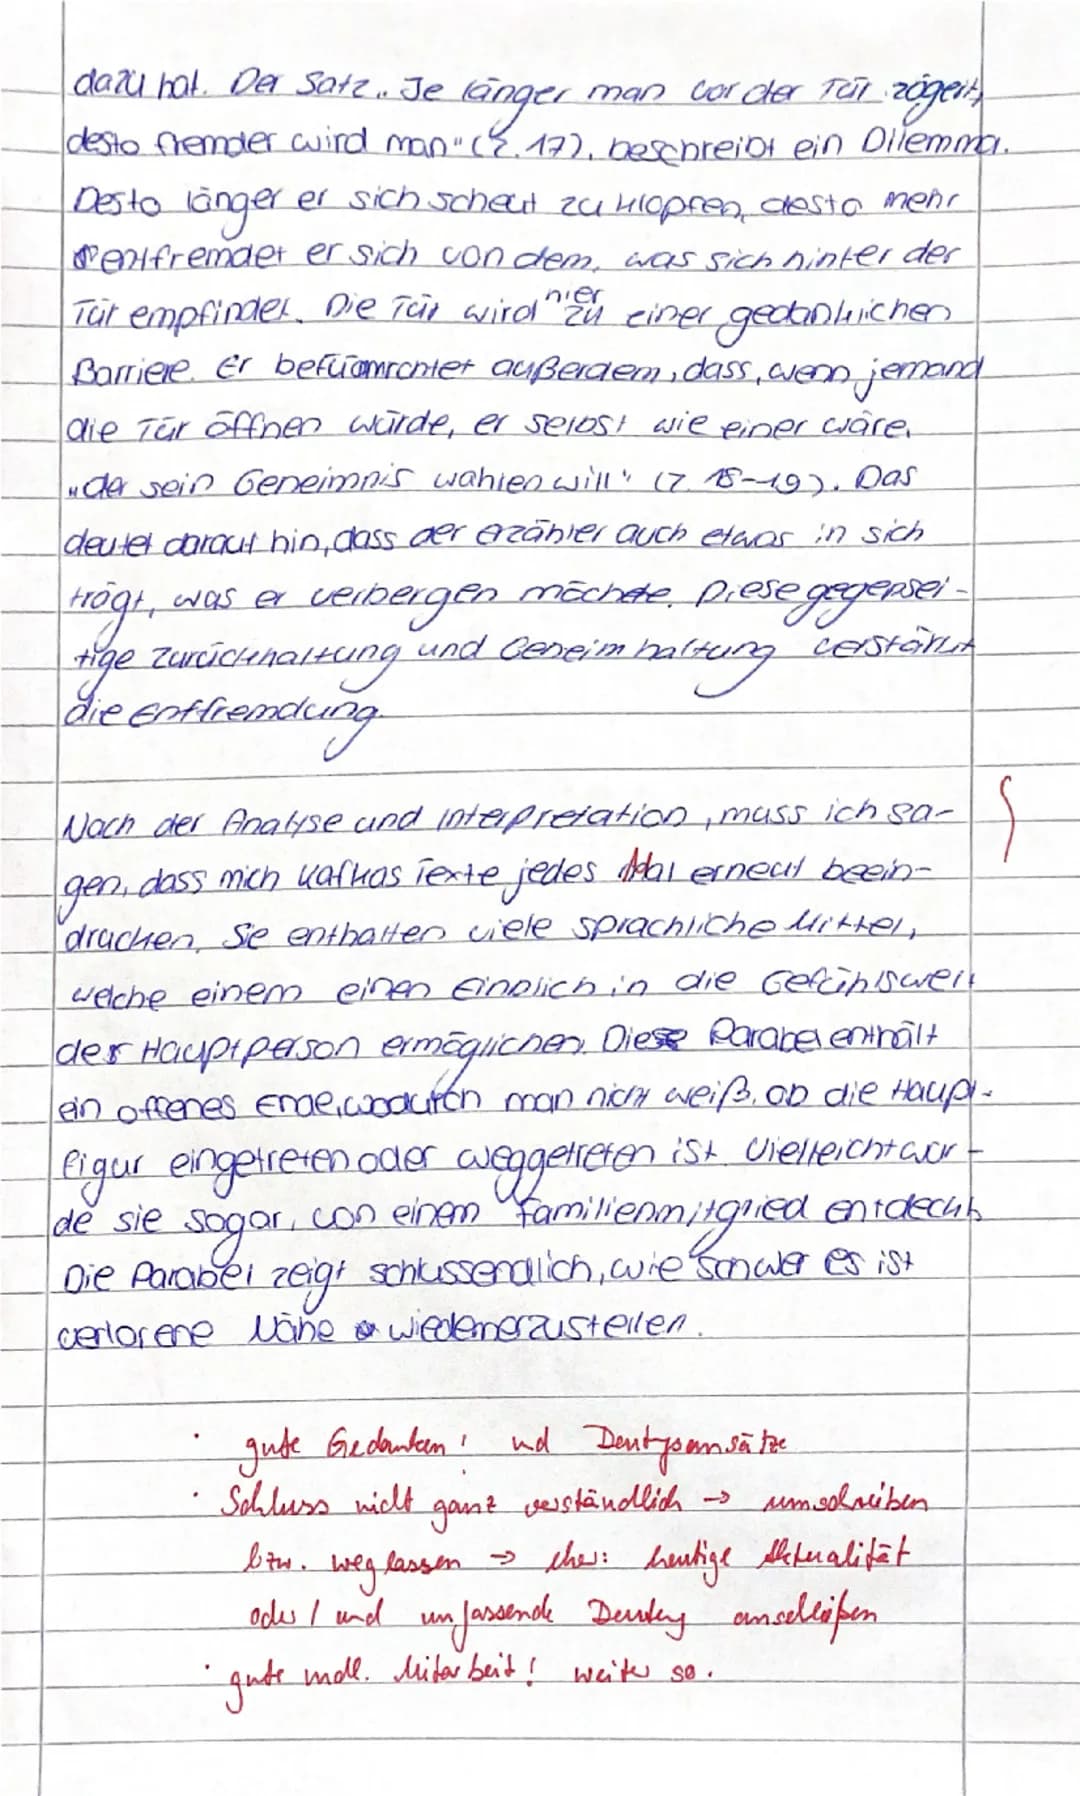 dazu hat. Der Satz „Je länger man vor der Tür zögert,
desto fremder wird man" (Z. 17), beschreibt ein Dilemma.
Desto länger er sich scheut zu klopfen, desto mehr
entfremdet er sich von dem, was sich hinter der
Tür empfindet. Die Tür wird hier zu einer gedanklichen
Barriere. Er befürchtet außerdem, dass, wenn jemand
die Tür öffnen würde, er selbst wie einer wäre,
„der sein Geheimnis wahren will" (Z. 18-19). Das
deutet darauf hin, dass der Erzähler auch etwas in sich
trägt, was er verbergen möchte. Diese gegensei-
tige Zurückhaltung und Geheimhaltung verstärkt
die Entfremdung.
Nach der Analyse und Interpretation, muss ich sa-
gen, dass mich Kafkas Texte jedes Mal erneut beein-
drucken. Sie enthalten viele sprachliche Mittel,
welche einem einen Einblich in die Gefühlswelt
der Hauptperson ermöglichen. Diese Parabel enthält
ein offenes Ende, wodurch man nicht weiß, ob die Haupt-
figur eingetreten oder weggetreten ist. Vielleicht wur-
de sie sogar, von einem Familienmitglied entdeckt.
Die Parabel zeigt schlussendlich, wie schwer es ist
verlorene Nähe wiederherzustellen.
· gute Gedanken! und Deutungsansätze
· Schluss nicht ganz verständlich → umschreiben
bzw. weglassen → eher: heutige Aktualität
oder / und umfassende Deutung anschließen
· gute mdl. Mitarbeit! weiter so.